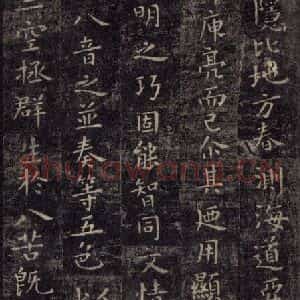 隱比地方春潤海道
庾亮而已尒其迺用顯
明之巧固能智同文情
八音之並奏等五色以
空極群生於八苦既
Shufawang.CN